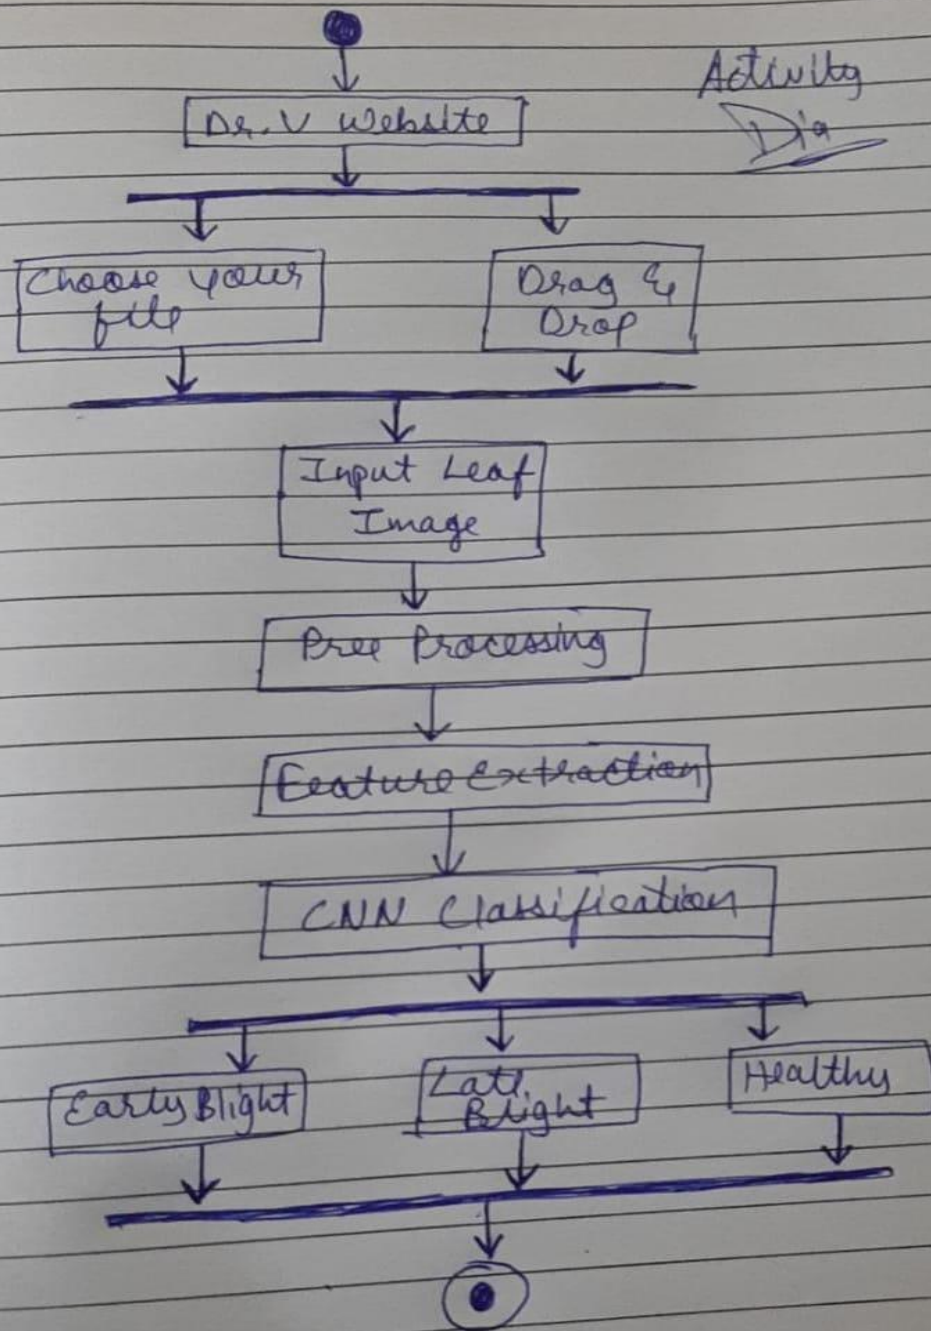 Activity
Dia
Dr. V Website
Choose your
file
Drag &
Drop
Input Leaf
Image
Pree Processing
Feature Extraction
CNN Classification
Early Blight
Late
Blight
Healthy